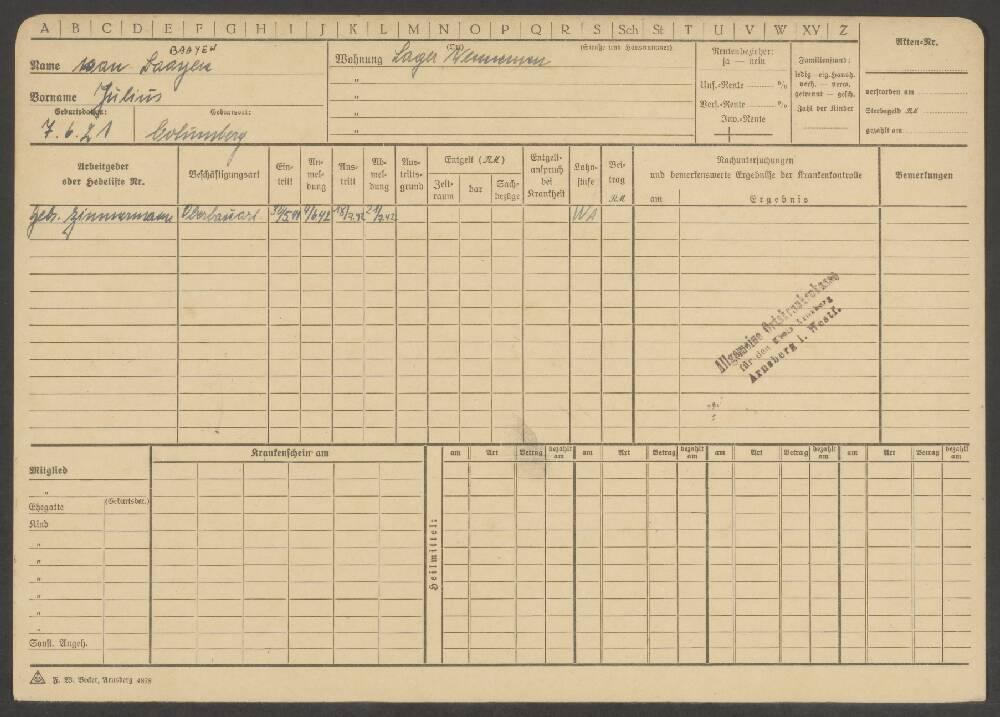 A B C D E F G H I J K L M N O P Q R S Sch St T U V W XY Z
BAAYEN
Name van Baayen
Vorname Julius
Geburtsdatum: Geburtsort:
7.6.21
Wohnung (Ort) (Straße und Hausnummer)
Lager Wennemen
"
"
"
Rentenbezieher:
ja — nein
Unf.-Rente %
Vers.-Rente %
Inv.-Rente
Familienstand:
ledig – eig. Haush.
verh. – verw.
getrennt – gesch.
Zahl der Kinder
Akten-Nr.
verstorben am
Sterbegeld RM
gezahlt am
Arbeitgeber oder Hebeliste Nr. Beschäftigungsart Ein-tritt An-mel-dung Aus-tritt Ab-mel-dung Aus-tritts-grund Entgelt (RM) Zeit-raum bar Sach-bezüge Entgelt-anspruch bei Krankheit Lohn-stufe Bei-trag RM Nachuntersuchungen und bemerkenswerte Ergebnisse der Krankenkontrolle am Ergebnis Bemerkungen
Gebr. Zimmermann Oberbauarb. 4/6 42 18/7.42 21/7.42 WA
Allgemeine Ortskrankenkasse
für den Kreis Arnsberg
Arnsberg i. Westf.
Krankenschein am
am Art Betrag bezahlt am am Art Betrag bezahlt am am Art Betrag bezahlt am am Art Betrag bezahlt am
Mitglied
"
Ehegatte (Geburtsdat.)
Kind
"
"
"
"
"
"
Sonst. Angeh.
Heilmittel:
F. W. Becker, Arnsberg 4878